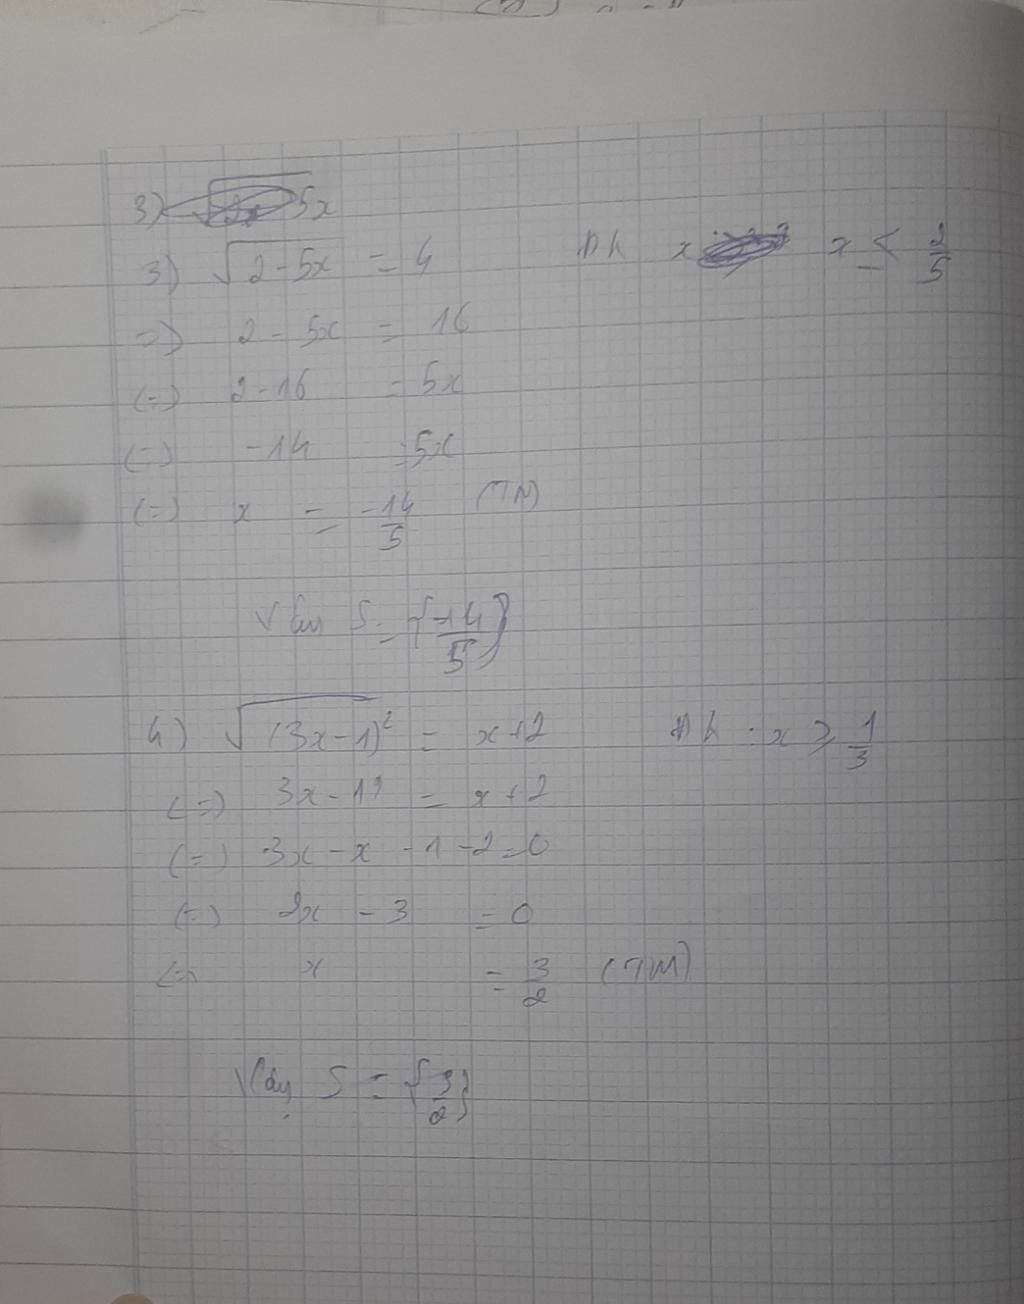 3) 5x
3) √(2-5x) = 4 ĐK x x ≤ 2/5
=> 2 - 5x = 16
(=) 2-16 = 5x
(=) -14 = 5x
(=) x = -14/5 (TN)
Vậy S = {-14/5}
4) √(3x-1)² = x+2 ĐK : x ≥ 1/3
(=) 3x-1 = x+2
(=) 3x - x - 1 - 2 = 0
(=) 2x - 3 = 0
(=) x = 3/2 (TM)
Vậy S = {3/2}